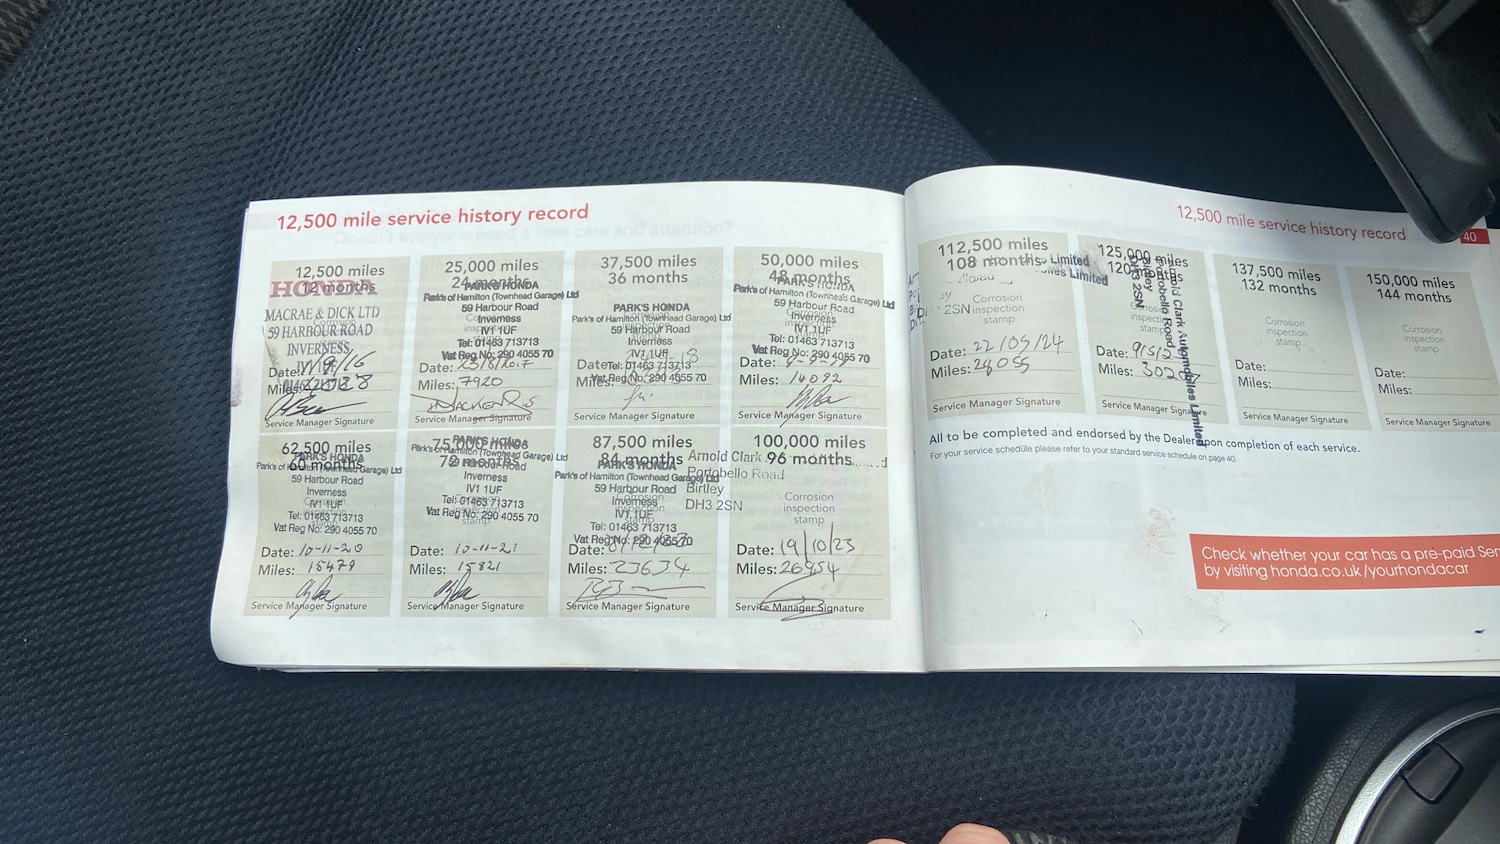 12,500 mile service history record
12,500 miles
12 months
HONDA
MACRAE & DICK LTD
59 HARBOUR ROAD
INVERNESS,
Date:
Miles:
Service Manager Signature
25,000 miles
24 months
PARK'S HONDA
Park's of Hamilton (Townhead Garage) Ltd
59 Harbour Road
Inverness
IV1 1UF
Tel: 01463 713713
Vat Reg No: 290 4055 70
Date:
Miles: 7920
Service Manager Signature
37,500 miles
36 months
PARK'S HONDA
Park's of Hamilton (Townhead Garage) Ltd
59 Harbour Road
Inverness
IV1 1UF
Date: Tel: 01463 713713
Miles: Vat Reg No: 290 4055 70
Service Manager Signature
50,000 miles
48 months
PARK'S HONDA
Park's of Hamilton (Townhead Garage) Ltd
59 Harbour Road
Inverness
IV1 1UF
Tel: 01463 713713
Vat Reg No: 290 4055 70
Date:
Miles: 14092
Service Manager Signature
62,500 miles
60 months
PARK'S HONDA
Park's of Hamilton (Townhead Garage) Ltd
59 Harbour Road
Inverness
IV1 1UF
Tel: 01463 713713
Vat Reg No: 290 4055 70
Date: 10-11-20
Miles: 15479
Service Manager Signature
75,000 miles
72 months
PARK'S HONDA
Park's of Hamilton (Townhead Garage) Ltd
59 Harbour Road
Inverness
IV1 1UF
Tel: 01463 713713
Vat Reg No: 290 4055 70
Date: 10-11-21
Miles: 15821
Service Manager Signature
87,500 miles
84 months
PARK'S HONDA
Park's of Hamilton (Townhead Garage) Ltd
59 Harbour Road
Inverness
IV1 1UF
Tel: 01463 713713
Vat Reg No: 290 4055 70
Date:
Miles: 23634
Service Manager Signature
100,000 miles
96 months
Arnold Clark
Portobello Road
Birtley
DH3 2SN
Corrosion
inspection
stamp
Date: 19/10/23
Miles: 26954
Service Manager Signature
12,500 mile service history record
40
112,500 miles
108 months
Limited
Limited
2SN
Corrosion
inspection
stamp
Date: 22/05/24
Miles: 28055
Service Manager Signature
125,000 miles
120 months
Clark Automobiles Limited
Portobello Road
Birtley
DH3 2SN
Date:
Miles:
Service Manager Signature
137,500 miles
132 months
Corrosion
inspection
stamp
Date:
Miles:
Service Manager Signature
150,000 miles
144 months
Corrosion
inspection
stamp
Date:
Miles:
Service Manager Signature
All to be completed and endorsed by the Dealer upon completion of each service.
For your service schedule please refer to your standard service schedule on page 40.
Check whether your car has a pre-paid Ser
by visiting honda.co.uk/yourhondacar